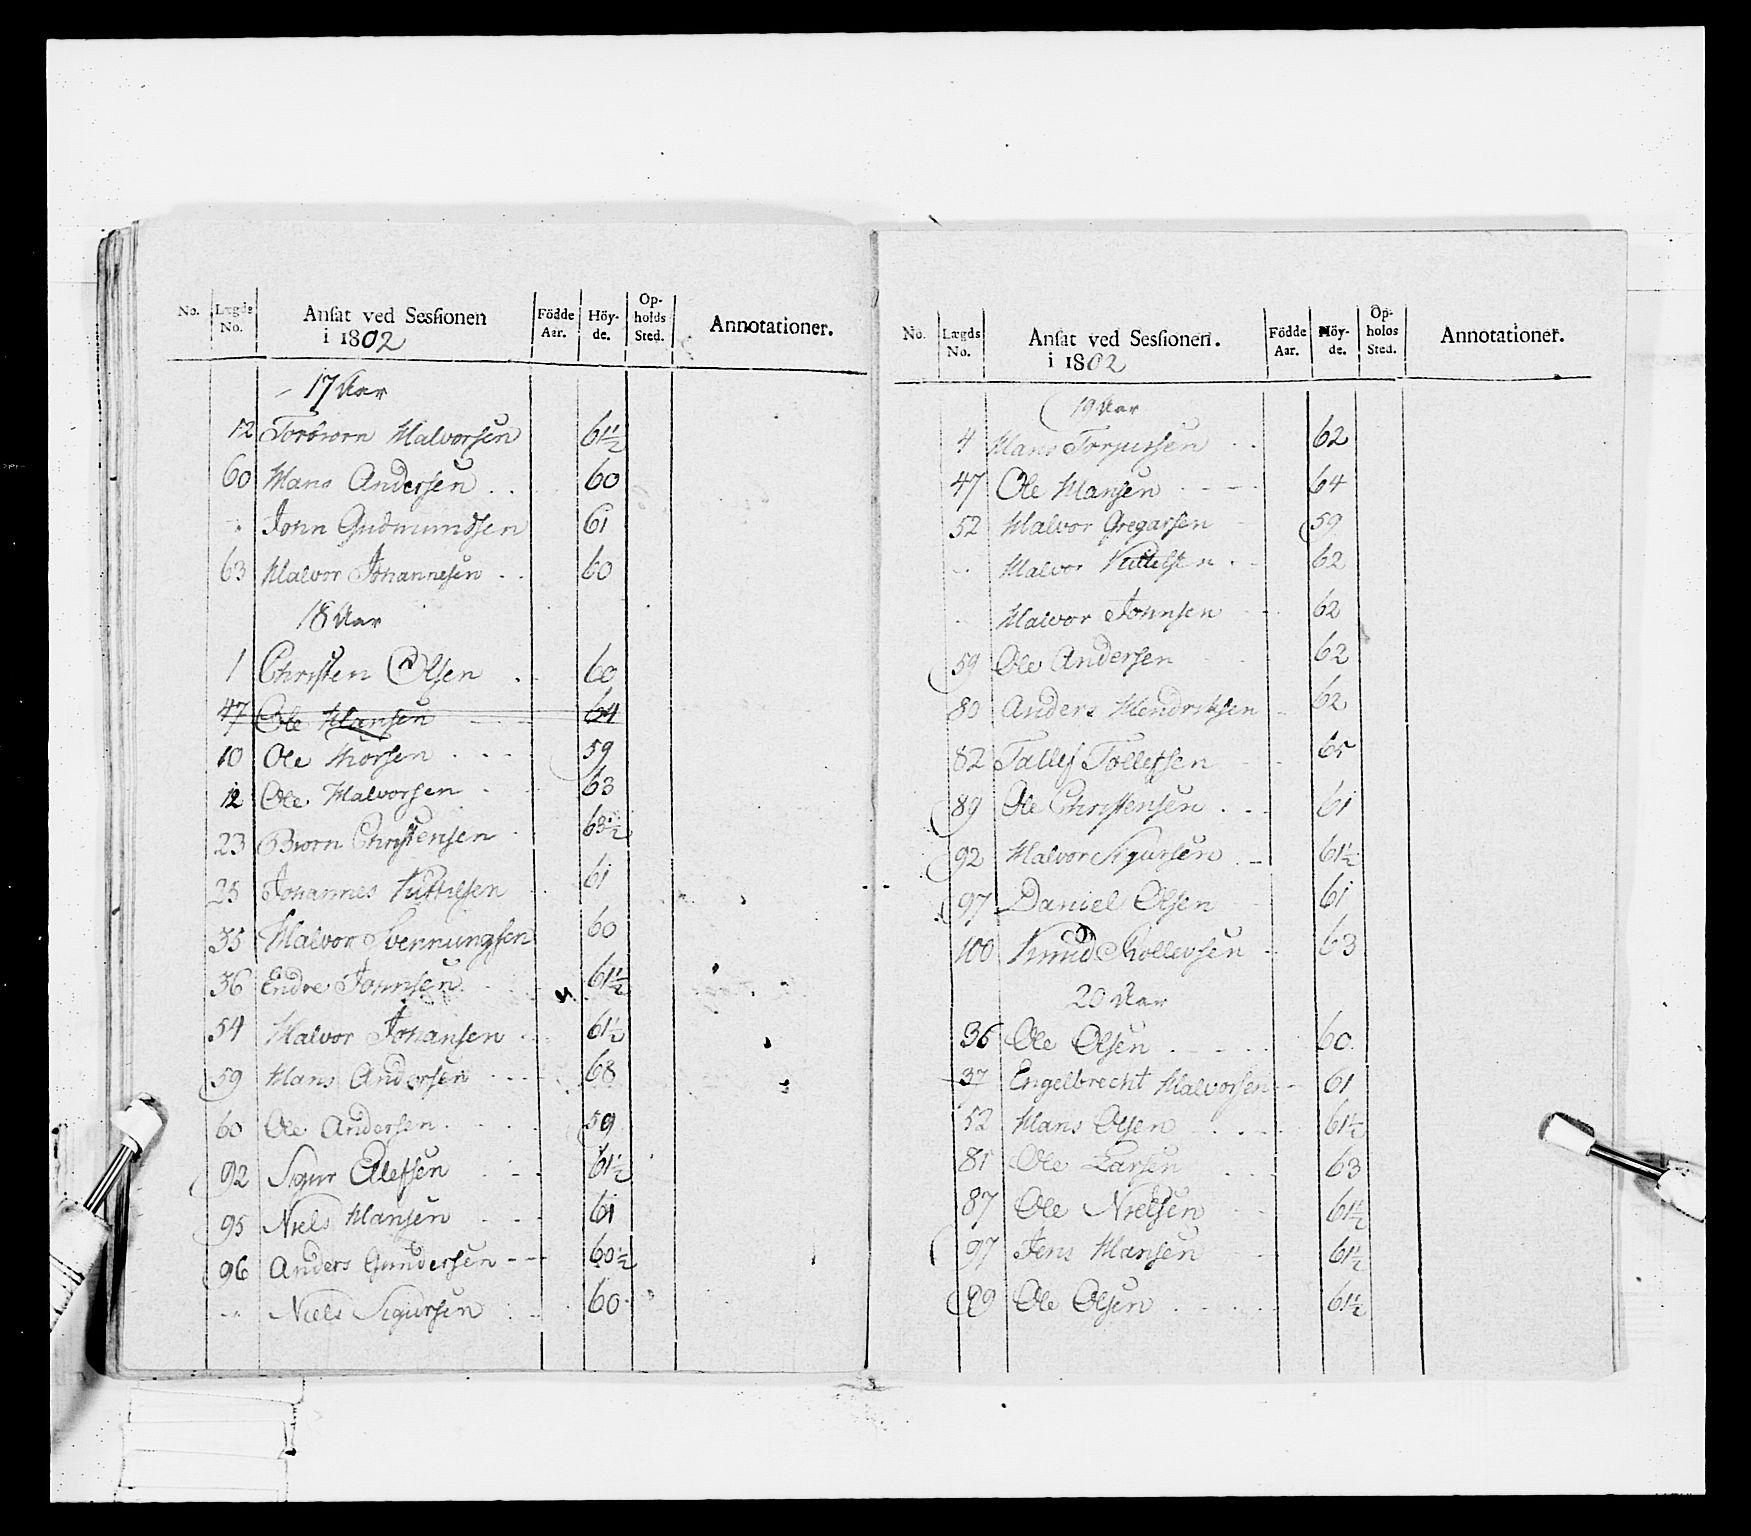 No. Lægds No. Ansat ved Sessionen i 1802 Födde Aar. Höyde. Opholds Sted. Annotationer.
17 Aar
12 Torbiorn Halvorsen 61½
60 Hans Andersen 60
" John Gudmundsen 61
63 Halvor Johannesen 60
18 Aar
1 Christen Olsen 60
47 Ole Hansen 64
10 Ole Thorsen 59
12 Ole Halvorsen 63
23 Biorn Christensen 63½
25 Johannes Kittilsen 61
35 Halvor Svennungsen 60
36 Endre Johnsen 61½
54 Halvor Johansen 61½
59 Hans Andersen 68
60 Ole Andersen 59
92 Sigur Olefsen 61½
95 Niels Hansen 61
96 Anders Gundersen 60½
" Niels Sigursen 60
No. Lægds No. Ansat ved Sessionen. i 1802 Födde Aar. Höyde. Opholds Sted. Annotationer.
19 Aar
4 Hans Torgersen 62
47 Ole Hansen 64
52 Halvor Gregarsen 59
" Halvor Kittelsen 62
" Halvor Johnsen 62
59 Ole Andersen 62
80 Anders Hendriksen 62
82 Tallef Tollefsen 65
89 Ole Christensen 61
92 Halvor Sigursen 61½
97 Daniel Olsen 61
100 Knud Thollevsen 63
20 Aar
36 Ole Olsen 60
37 Engelbrecht Halvorsen 61
52 Hans Olsen 61½
81 Ole Larsen 63
87 Ole Nielsen 61½
97 Jens Hansen 61½
99 Ole Olsen 61½